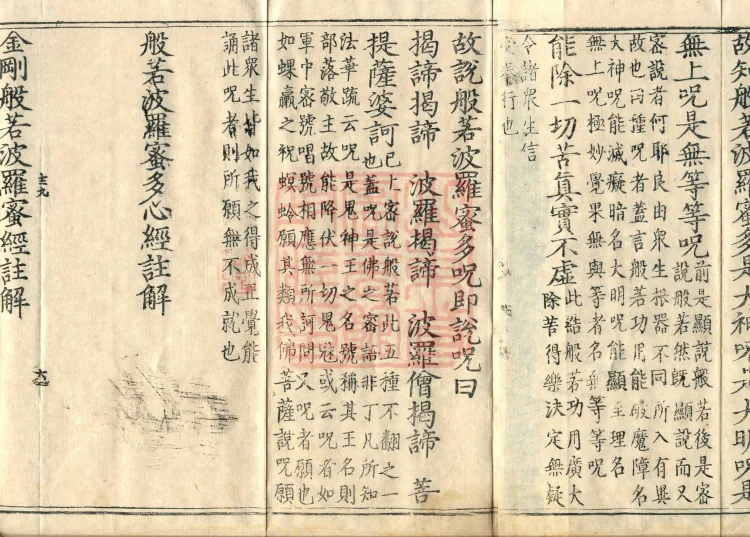 故知般若波羅蜜多是大神呪是大明呪是
無上呪是無等等呪前是顯說般若後是密
說般若然既顯說而又
密說者何耶良由衆生根器不同所入有異
故也四種呪者蓋言般若功用能破魔障名
大神呪能滅癡暗名大明呪能顯至理名
無上呪極妙覺果無與等者名無等等呪
能除一切苦眞實不虛此結般若功用廣大
除苦得樂決定無疑
令諸衆生信
受奉行也
故說般若波羅蜜多呪即說呪曰
揭諦揭諦 波羅揭諦 波羅僧揭諦 菩
提薩婆訶已上密說般若此五種不翻之一
也蓋呪是佛之密語非下凡所知
法華疏云呪是鬼神王之名號稱其王名則
部落敬主故能降伏一切鬼寇或云呪者如
軍中密號唱號相應無所訶問又呪者願也
如蜾蠃之祝螟蛉願其類我佛菩薩說呪願
諸衆生皆如我之得成正覺能
誦此呪者則所願無不成就也
般若波羅蜜多心經註解
金剛般若波羅蜜經註解